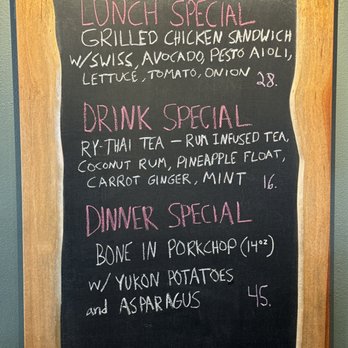 LUNCH SPECIAL
GRILLED CHICKEN SANDWICH
W/SWISS, AVOCADO, PESTO AIOLI,
LETTUCE, TOMATO, ONION 28.
DRINK SPECIAL
RY-THAI TEA - RUM INFUSED TEA,
COCONUT RUM, PINEAPPLE FLOAT,
CARROT GINGER, MINT 16.
DINNER SPECIAL
BONE IN PORKCHOP (14oz)
W/ YUKON POTATOES
and ASPARAGUS 45.